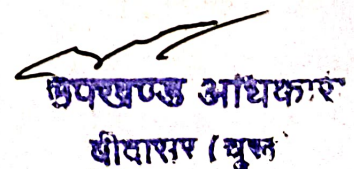 उपखण्ड अधिकारी
बीदासर (चुरू